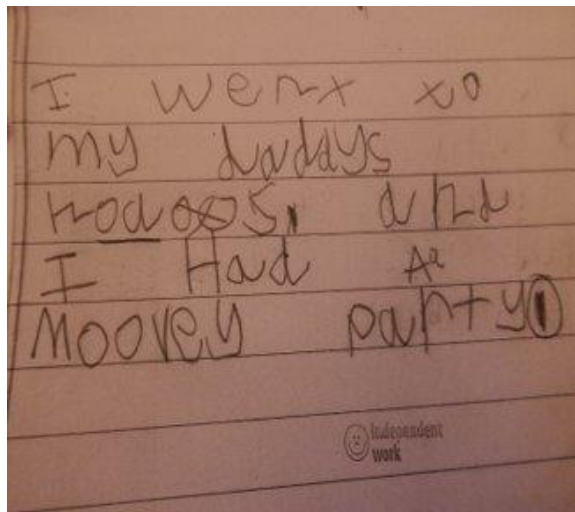 I went to
my daddys
and
I Had Aa
Moovey party
independent
work